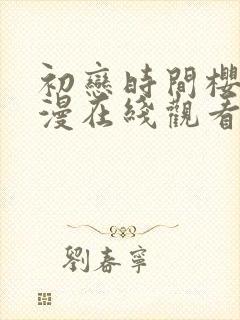 初戀時間櫻
漫在綫觀看
劉春寧